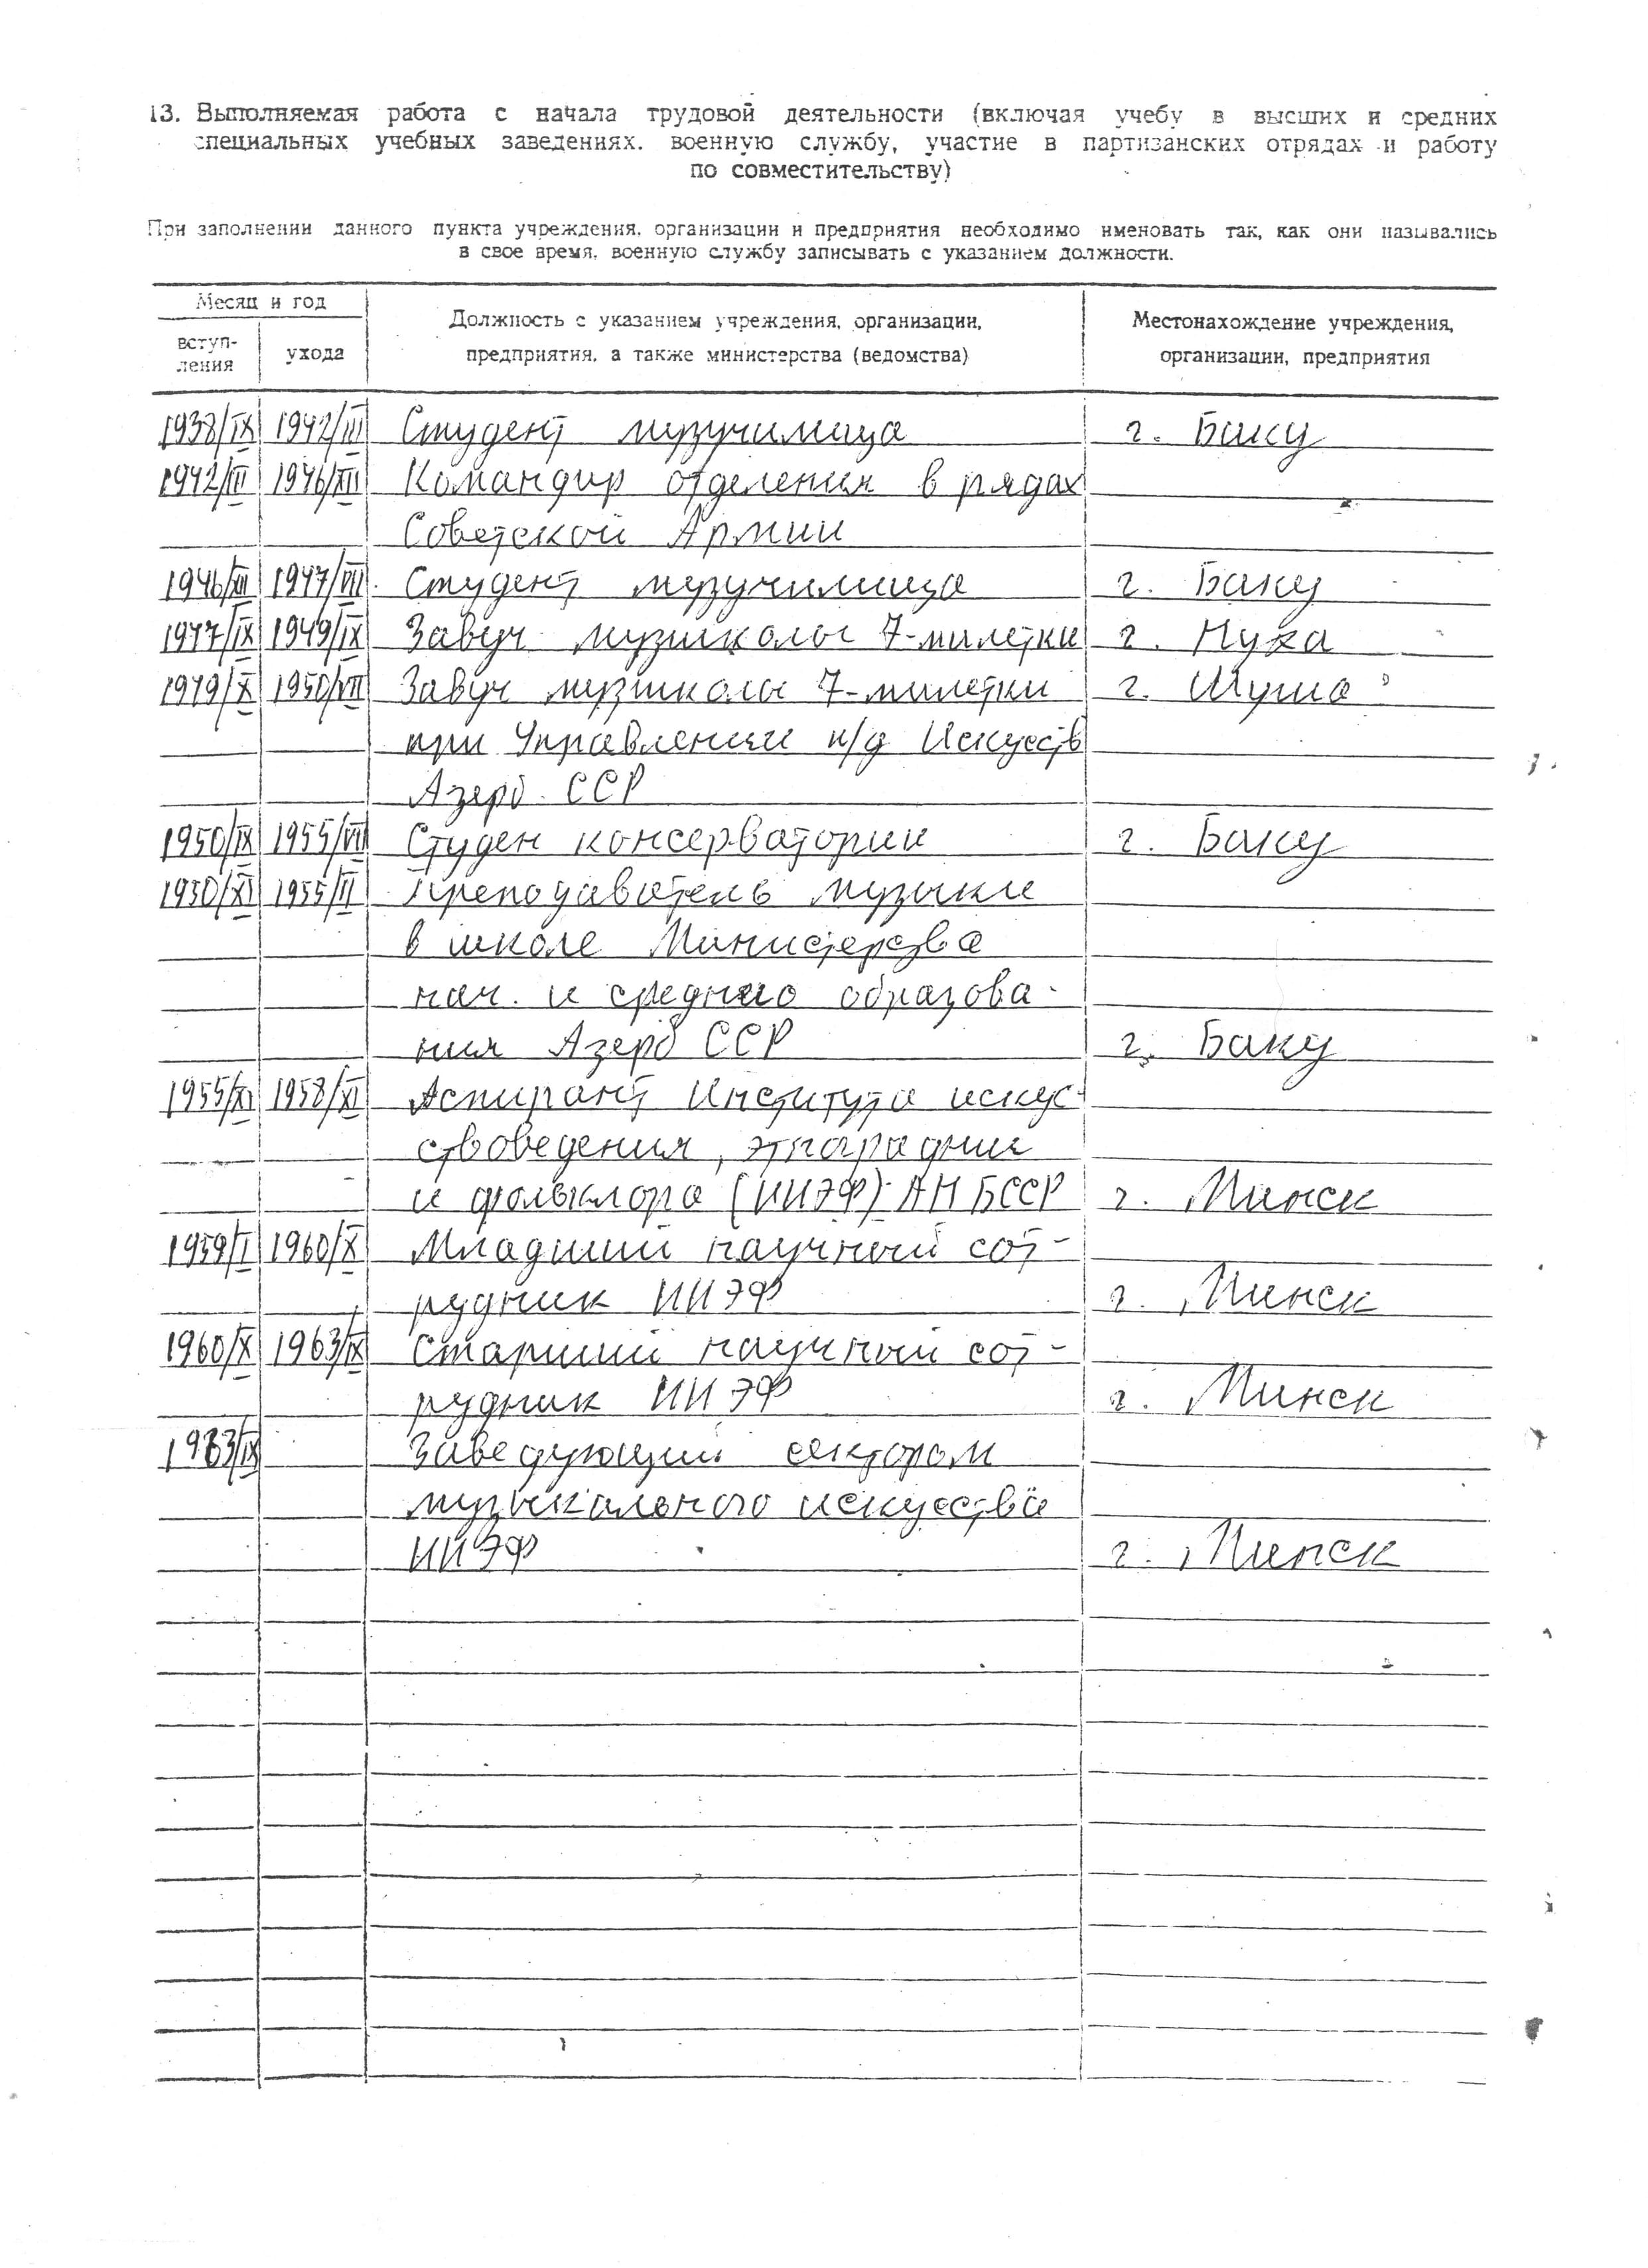 13. Выполняемая работа с начала трудовой деятельности (включая учебу в высших и средних
специальных учебных заведениях, военную службу, участие в партизанских отрядах и работу
по совместительству)
При заполнении данного пункта учреждения, организации и предприятия необходимо именовать так, как они назывались
в свое время, военную службу записывать с указанием должности.
Месяц и год
вступ-
ления
ухода
Должность с указанием учреждения, организации,
предприятия, а также министерства (ведомства)
Местонахождение учреждения,
организации, предприятия
1938/IX 1942/III Студент музучилища г. Баку
1942/III 1946/XII Командир отделения в рядах
Советской Армии
1946/XII 1947/VII Студент музучилища г. Баку
1947/IX 1949/IX Завуч музшколы 7-милетки г. Нуха
1949/X 1950/VII Завуч музшколы 7-милетки г. Шуша
при Управлении п/д Искусств
Азерб. ССР
1950/IX 1955/VII Студен консерватории г. Баку
1950/XI 1955/II Преподаватель музыки
в школе Министерства
нач. и среднего образова-
ния Азерб ССР г. Баку
1955/XI 1958/XI Аспирант Института искус-
ствоведения, этнографии
и фольклора (ИИЭФ) АН БССР г. Минск
1959/I 1960/X Младший научный сот-
рудник ИИЭФ г. Минск
1960/X 1963/IX Старший научный сот-
рудник ИИЭФ г. Минск
1963/IX Заведующий сектором
музыкального искусства
ИИЭФ г. Минск